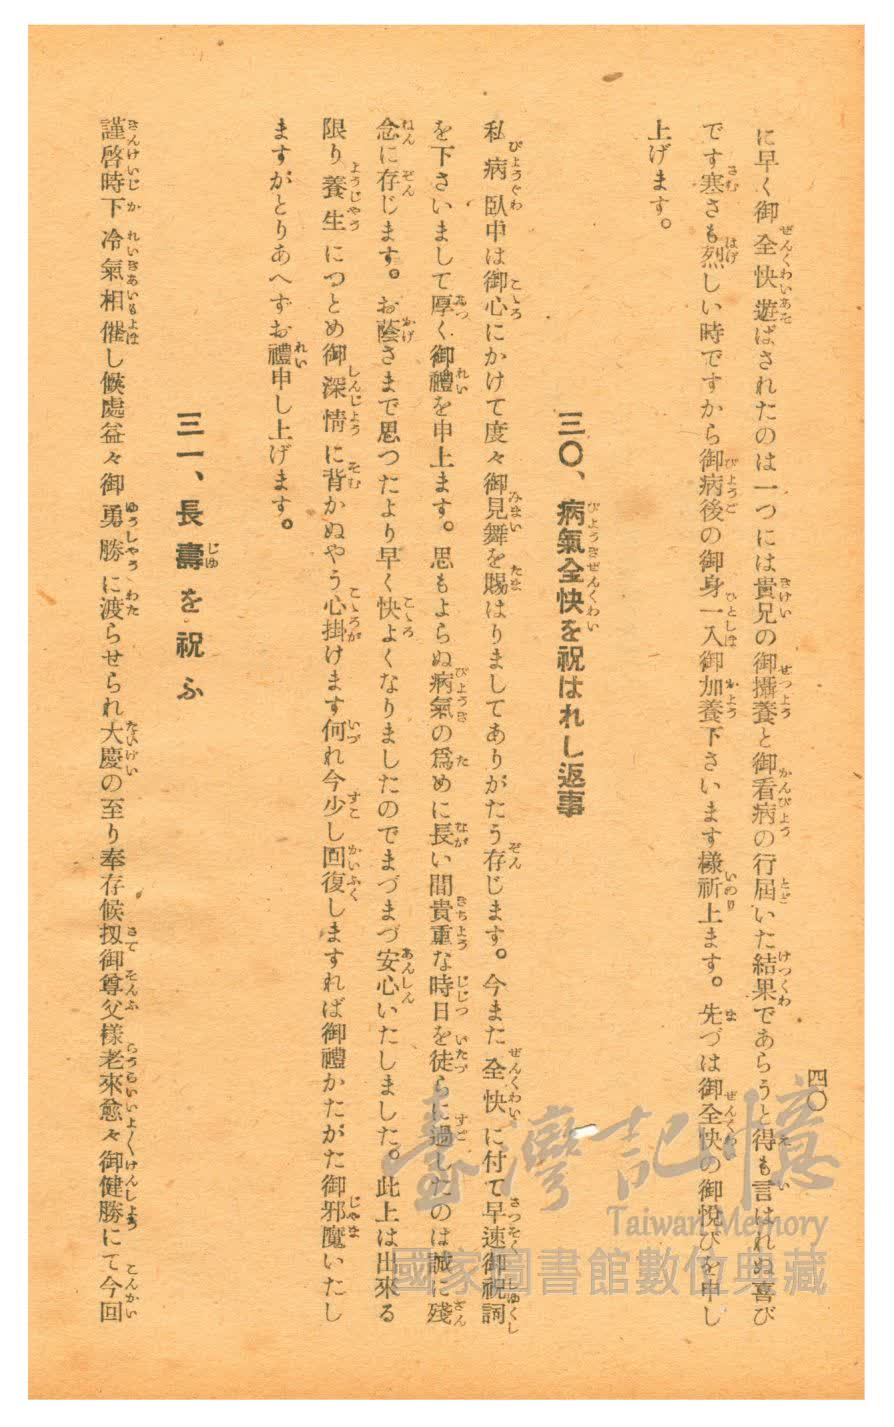 四〇
に早く御全快遊ばされたのは一つには貴兄の御攝養と御看病の行屆いた結果であらうと得も言はれぬ喜び
です寒さも烈しい時ですから御病後の御身一入御加養下さいます樣祈上ます。先づは御全快の御悅びを申し
上げます。
三〇、病氣全快を祝はれし返事
私病臥中は御心にかけて度々御見舞を賜はりましてありがたう存じます。今また全快に付て早速御祝詞
を下さいまして厚く御禮を申上ます。思もよらぬ病氣の爲めに長い間貴重な時日を徒らに過したのは誠に殘
念に存じます。お蔭さまで思つたより早く快よくなりましたのでまづまづ安心いたしました。此上は出來る
限り養生につとめ御深情に背かぬやう心掛けます何れ今少し回復しますれば御禮かたがた御邪魔いたし
ますがとりあへずお禮申し上げます。
三一、長壽を祝ふ
謹啓時下冷氣相催し候處益々御勇勝に渡らせられ大慶の至り奉存候扨御尊父樣老來愈々御健勝にて今回
臺灣記憶
Taiwan Memory
國家圖書館數位典藏